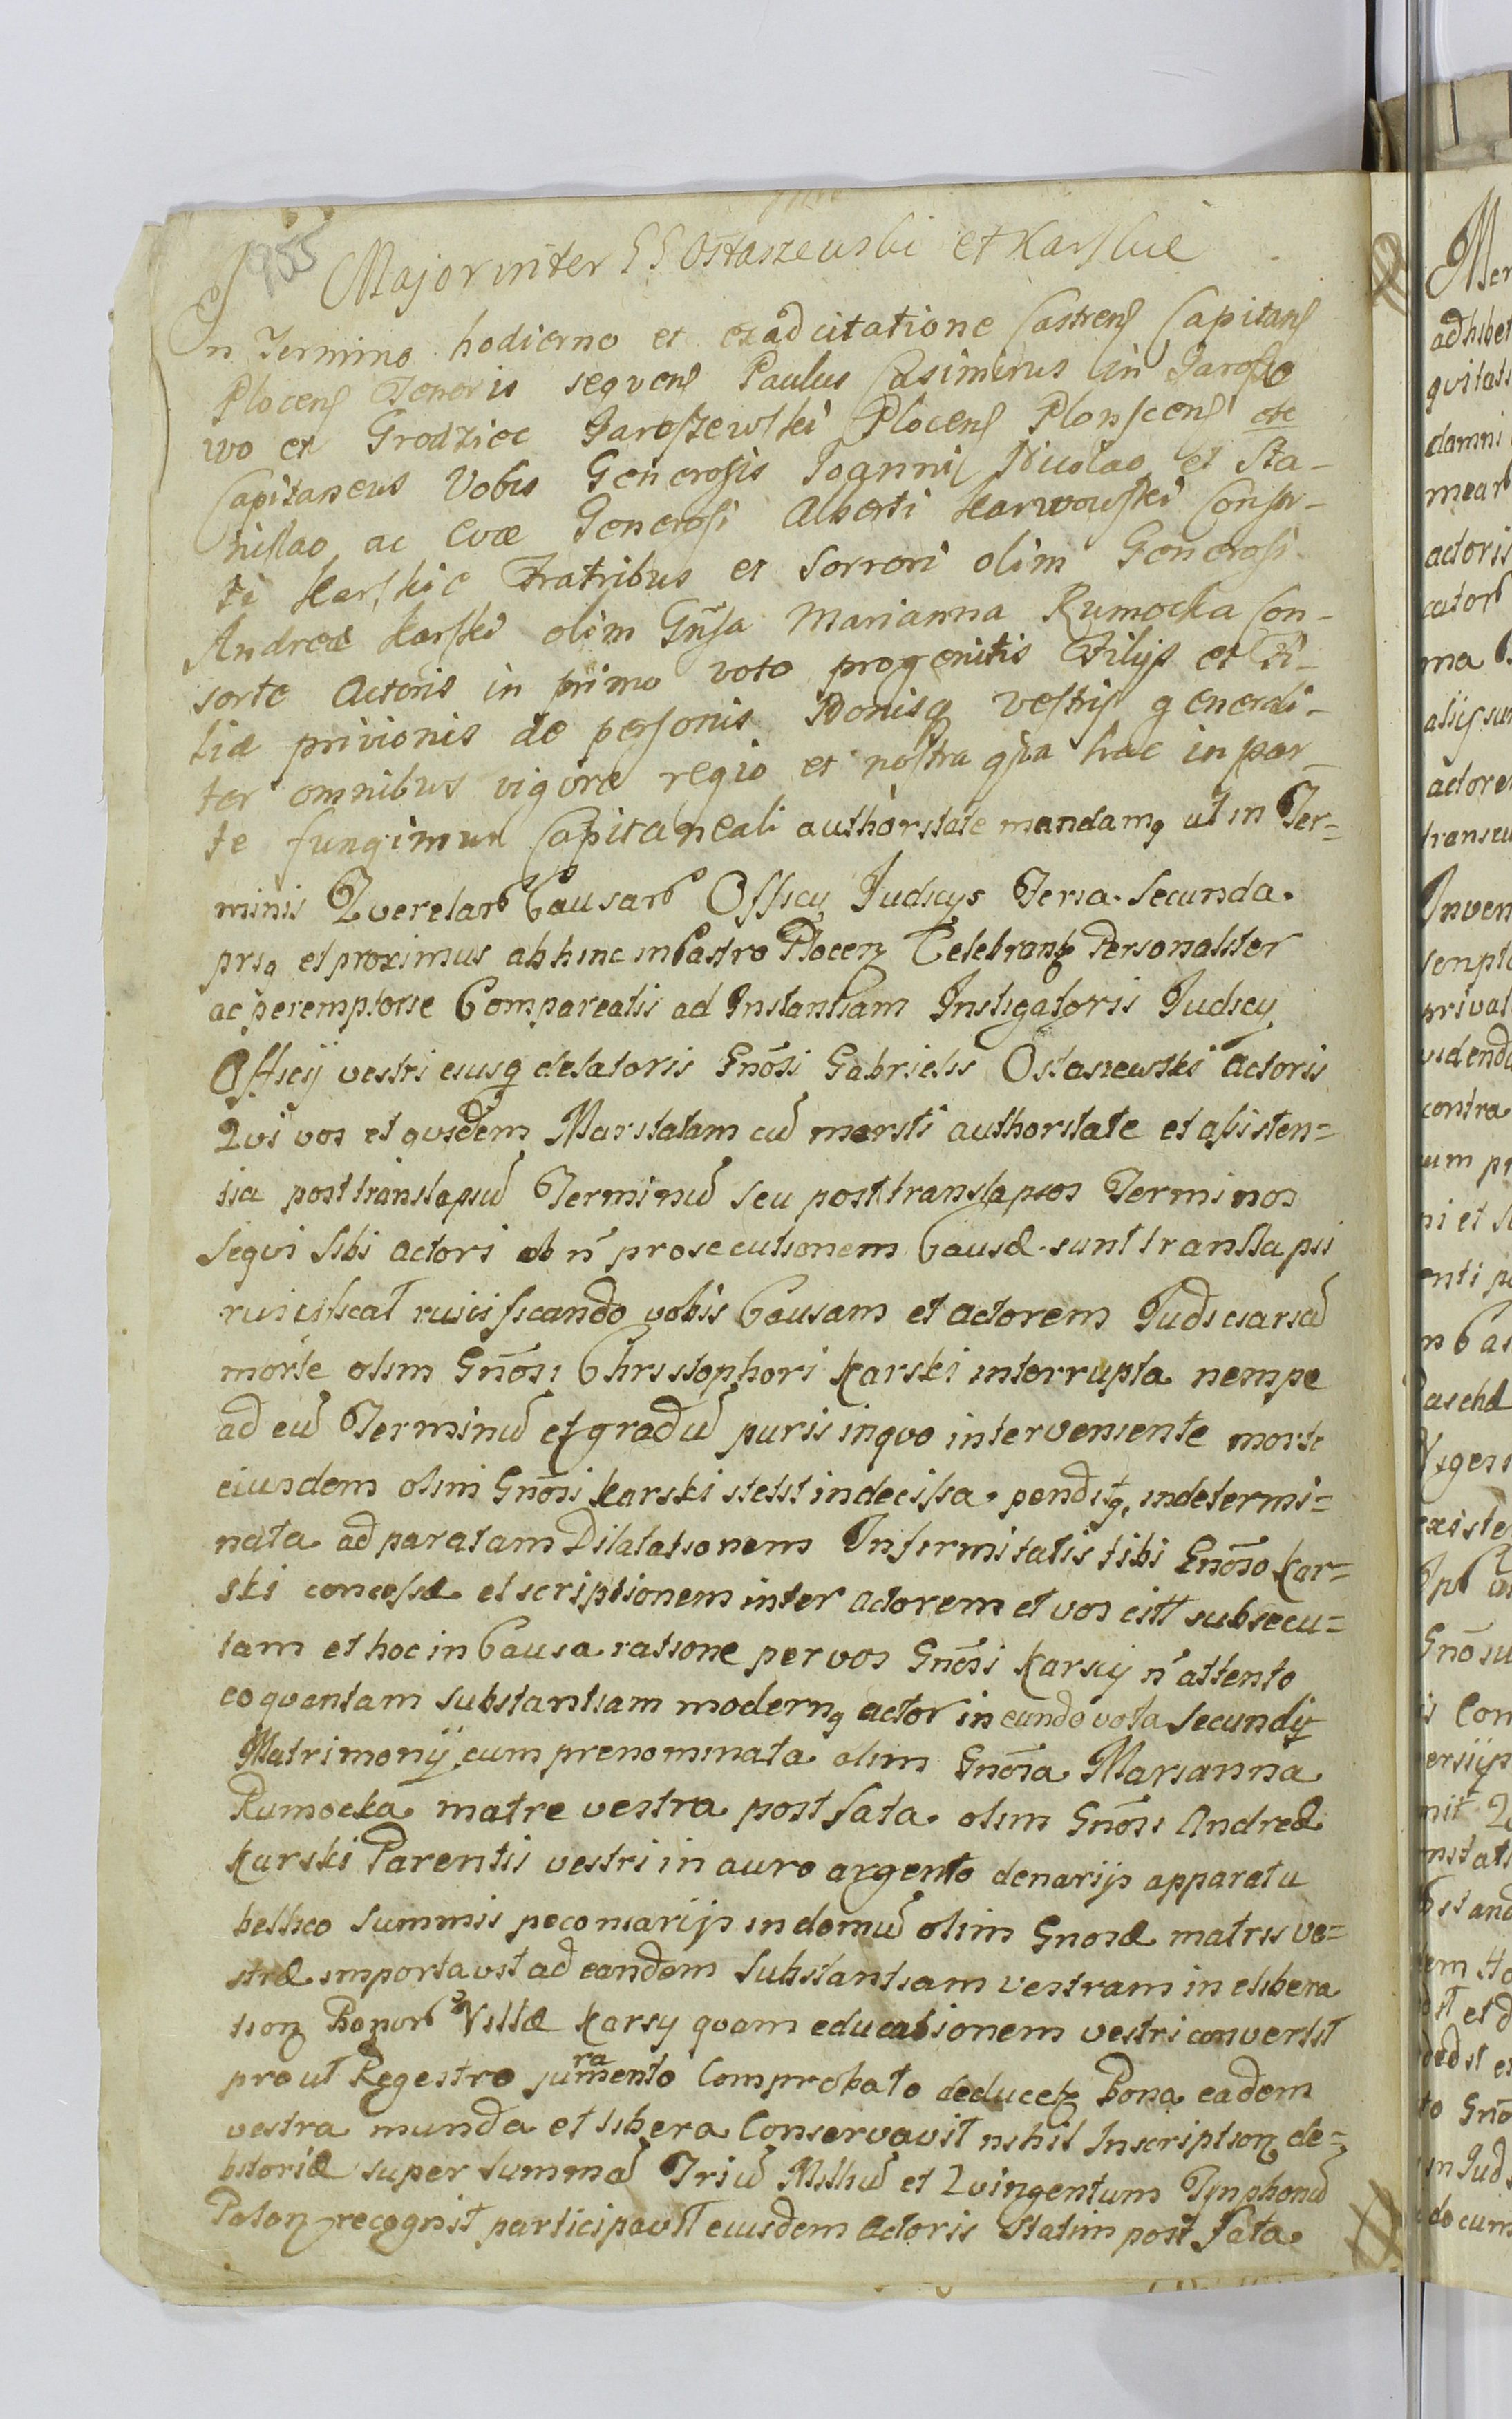 955
Major inter GG Ostaszewski et Karskie
In Termino hodierno et ex ad citatione Castrens Capitans
Plocens Tenoris sequens Paulus Casimirus in Garosze
wo et Grodziec Garoszewski Plocens Plonscens etc
Capitaneus Vobis Generosis Joanni Nicolao et Sta-
nislao ac Evæ Generosi Alberti Karwowski Consor-
ti Karskie Fratribus et Sorrori olim Generosi
Andreæ Karski olim Gnsa Marianna Rumocka Con-
sorte Actoris in primo voto progenitis Filijs et Fi-
liæ privionis de personis Bonisq vestris generali-
ter omnibus vigore regio et nostra qua hac in par-
te fungimur Capitaneali authoritate mandamq ut in Ter=
minis Querelarb Causarb Officy Judicys Feria Secunda
priq et proximus abhinc in Castro Plocen Celebrantz Personaliter
ac peremptorie Compareatis ad Instantiam Instigatoris Judicy
Officÿ vestri eiusq delatoris Gnōsi Gabrielis Ostaszewski Actoris
Qui vos et quidem Maritatam cū mariti authoritate et assisten=
tia post translapsū Terminū seu post translapsos Terminos
sequi sibi actori ob n prosecutionem Causæ sunt translapsi
ruscissicat ruscissicando vobis Causam et actorem Judiciariā
morte olim Gnōsi Christophori Karski interrupta nempe
ad eū Terminū et gradū puris in quo interveniente morte
eiusdem olim Gnōsi Karski stetit indecissa penditq indetermi=
nata ad paratam Dilationem Infirmitatis tibi Gnōso Kar=
ski concessæ et scriptionem inter actorem et vos citt subsecu=
tam et hoc in Causa ratione per vos Gnōsi Karscÿ n attento
eo quantam substantiam modernq actor in eundo vota secundÿ
Matrimonÿ cum prenominata olim Gnōsa Marianna
Rumocka matre vestra post fata olim Gnōsi Andreæ
Karski Parentis vestri in auro argento denarijs apparatu
bellico summis pecomiarijs in domū olim Gnosæ matris ve=
stræ importavit ad eandem Substantiam vestram in elibera
tion Bonorb Villæ Karsy quam educationem vestri convertit
prout Regestro juramento Comprobato deducetz Bona eadem
vestra munda et libera Conservavit nihil Inscription de=
bitoriæ super summā Triū Milliū et Quingentum Tynphonū
Polon recognit participavit eiusdem Actoris Statim post fata